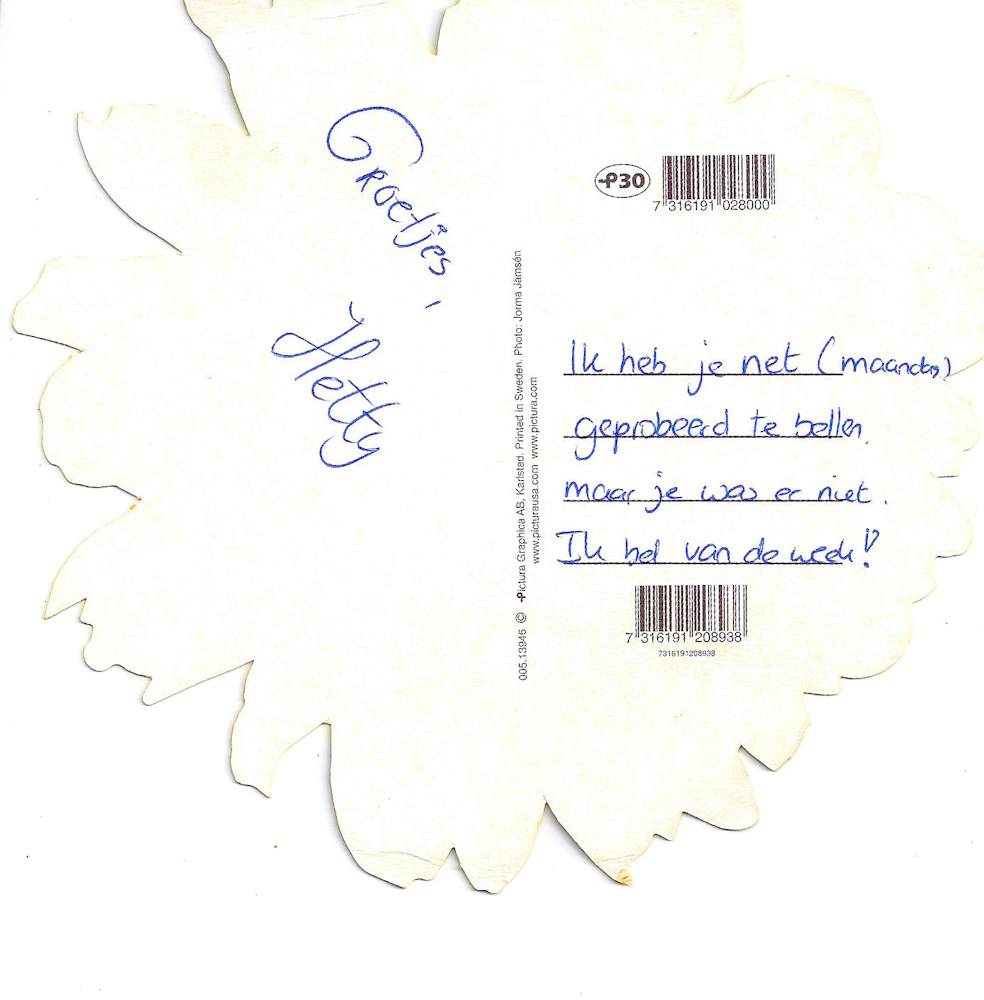 Groetjes,
Hetty
005.13946 © Pictura Graphica AB, Karlstad. Printed in Sweden. Photo: Jorma Jämsén
www.picturausa.com www.pictura.com
P30
7 316191 028000
Ik heb je net (maandag)
geprobeerd te bellen,
maar je was er niet.
Ik bel van de week!
7 316191 208938
7316191208938